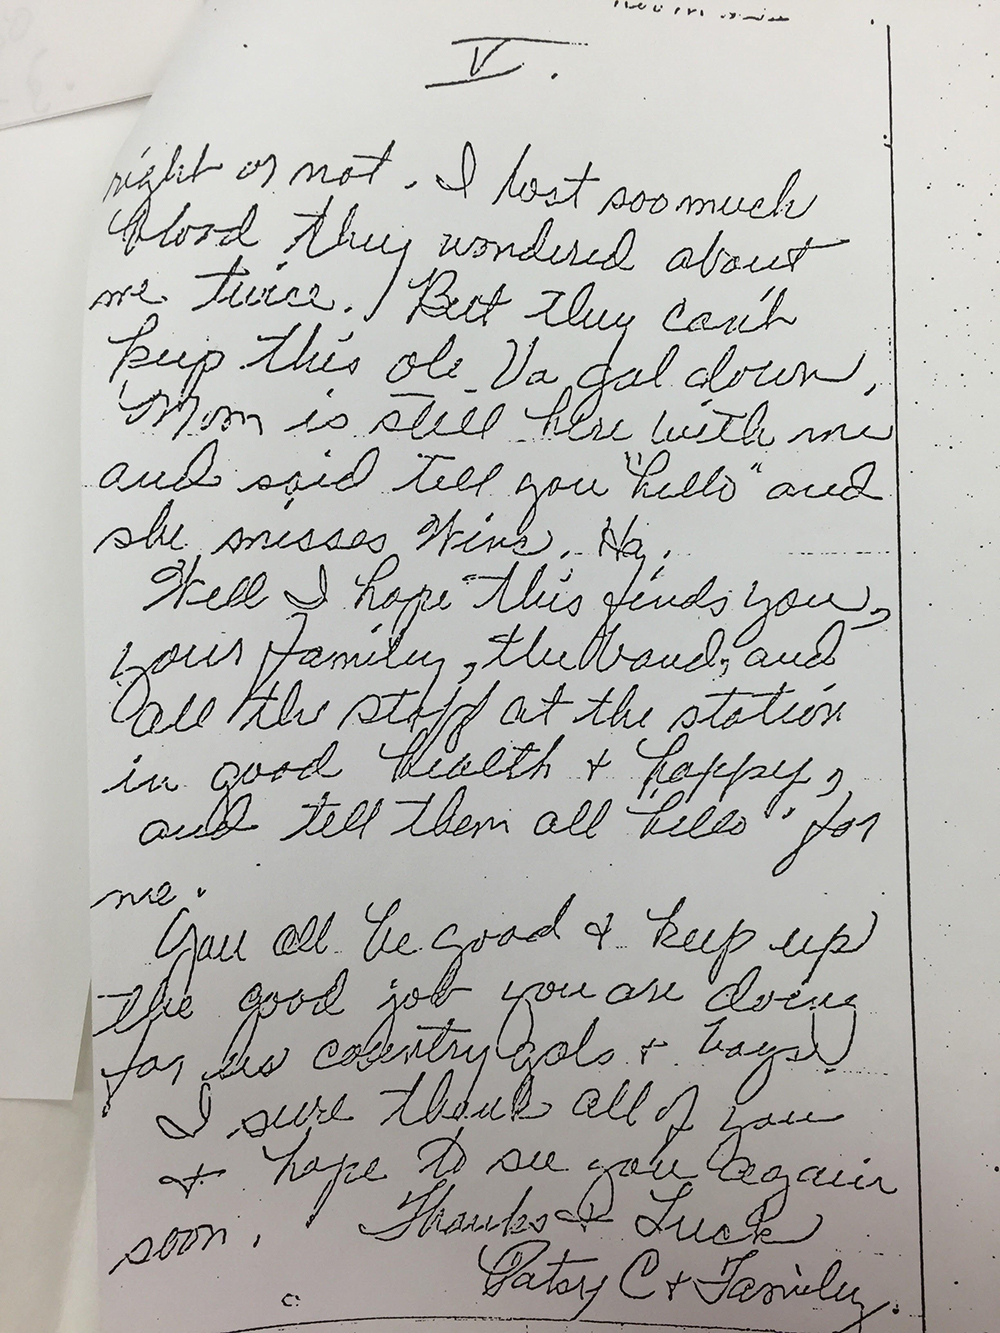 V.
right or not. I lost soo much
blood they wondered about
me twice. But they can't
keep this ole Va, gal down,
Mom is still here with me
and said tell you "hello" and
she misses Wins. Ha,
Well I hope this finds you,
your family, the band, and
all the staff at the station
in good health & happy,
and tell them all "hello" for
me.
You all be good & keep up
the good job you are doing
for us country gals & boys.
I sure thank all of you
& hope to see you again
soon. Thanks & Luck
Patsy C & Family.